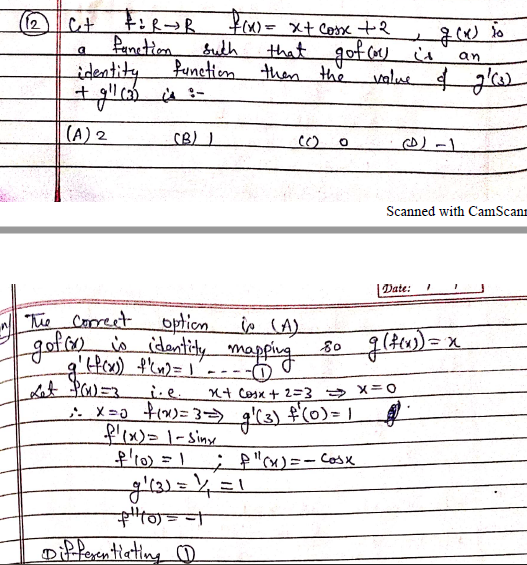 (12) Let f: R→R f(x) = x + cosx + 2, g(x) is
a function such that gof(x) is an
identity function then the value of g'(3)
+ g''(3) is :-
(A) 2 (B) 1 (C) 0 (D) -1
Scanned with CamScan
Date: / /
The correct option is (A)
gof(x) is identity mapping so g(f(x)) = x
g'(f(x)) f'(x) = 1 ----①
Let f(x)=3 i.e. x + cosx + 2 = 3 ⇒ x=0
∴ x=0 f(x)=3 ⇒ g'(3) f'(0) = 1
f'(x) = 1 - sinx
f'(0) = 1 ; f''(x) = - cosx
g'(3) = 1/1 = 1
f''(0) = -1
Differentiating ①